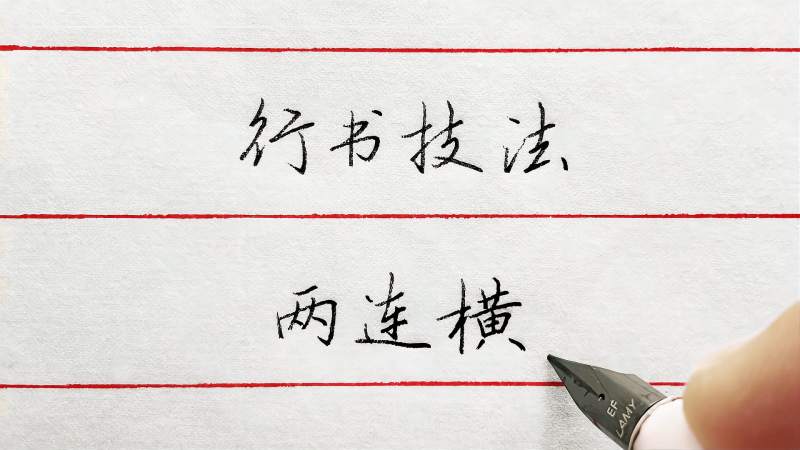 行书技法
两连横
EF
LAMY